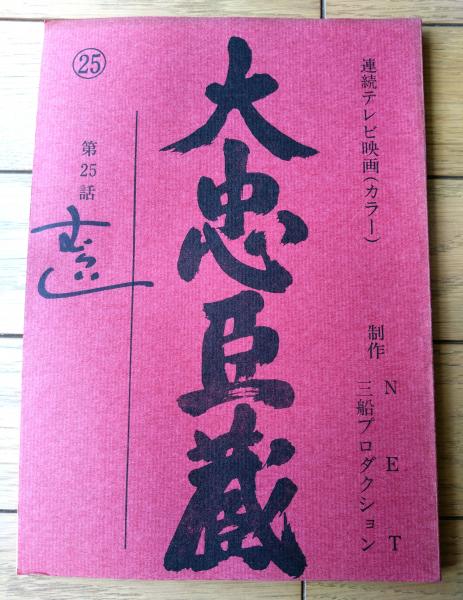 連続テレビ映画(カラー)
制作 NET
三船プロダクション
大忠臣蔵
㉕
第25話